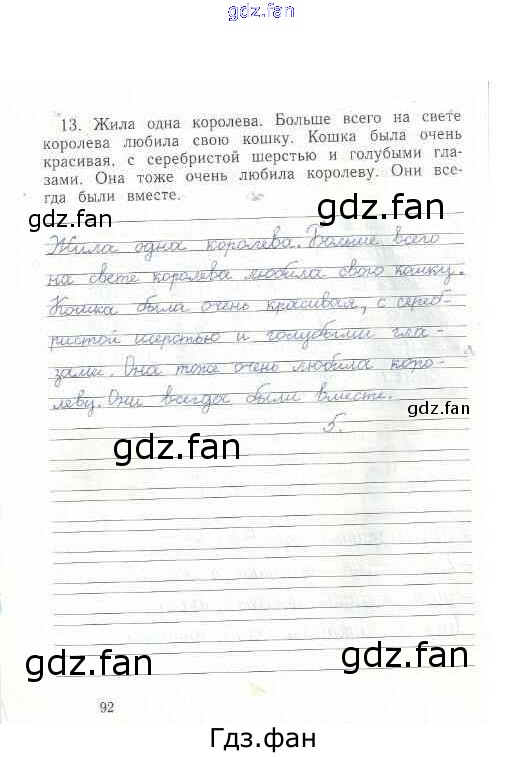 gdz.fan
13. Жила одна королева. Больше всего на свете
королева любила свою кошку. Кошка была очень
красивая, с серебристой шерстью и голубыми гла-
зами. Она тоже очень любила королеву. Они все-
гда были вместе.
gdz.fan
gdz.fan
Жила одна королева. Больше всего
на свете королева любила свою кошку.
Кошка была очень красивая, с сереб-
ристой шерстью и голубыми гла-
зами. Она тоже очень любила коро-
леву. Они всегда были вместе.
gdz.fan
5.
gdz.fan
gdz.fan
gdz.fan
gdz.fan
92
Гдз.фан